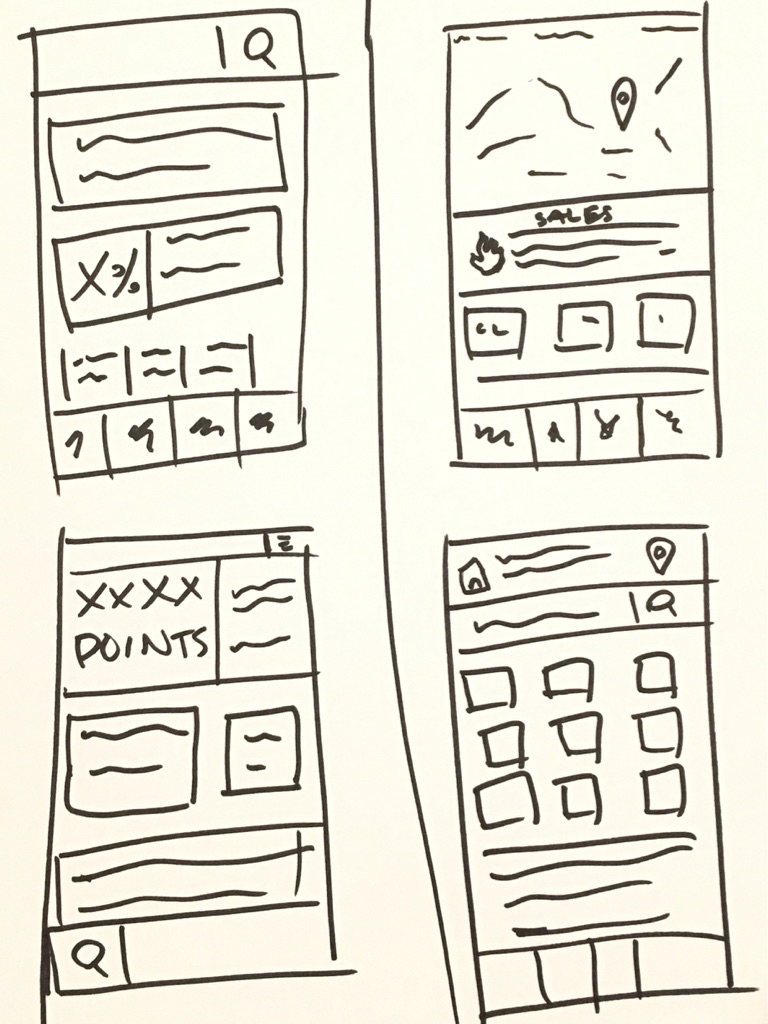 X%
SALES
XXXX
POINTS